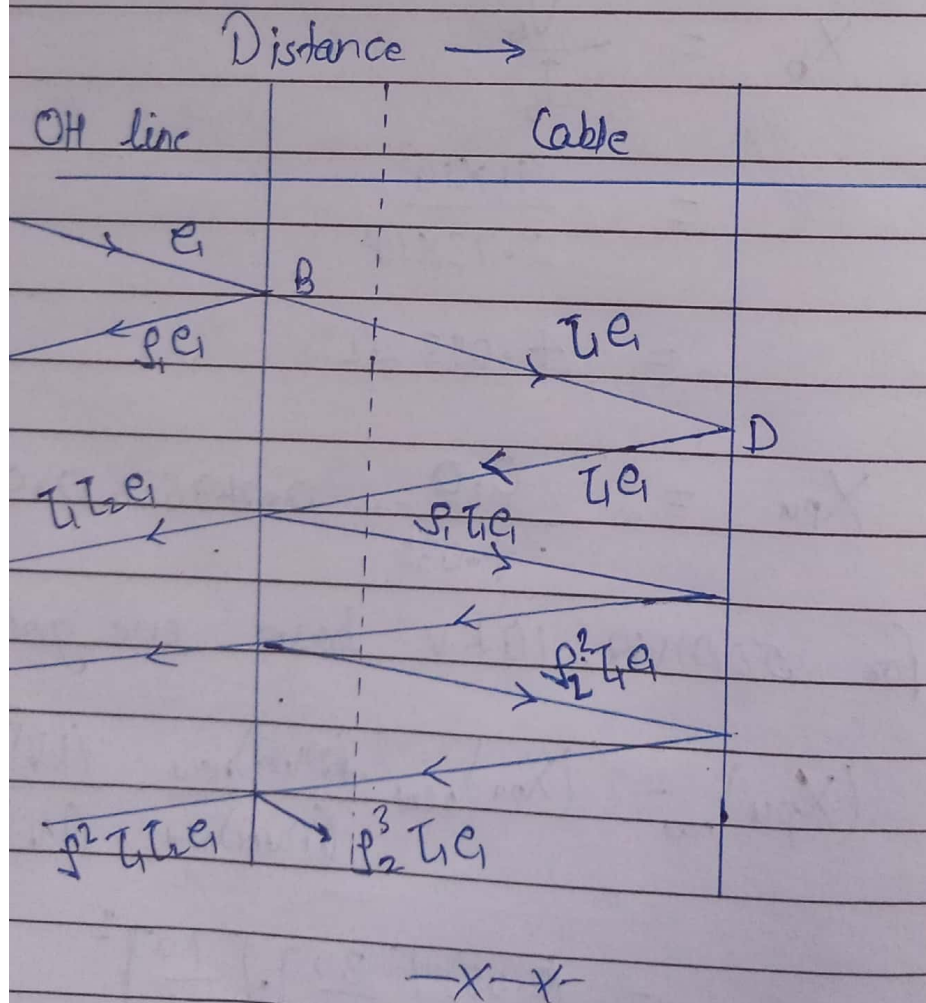 Distance →
OH line
Cable
e₁
B
ρ₁e₁
τ₁e₁
D
τ₁e₁
τ₁τ₂e₁
ρ₁τ₁e₁
ρ₂²τ₁e₁
ρ²τ₁τ₂e₁
ρ₂³τ₁e₁
—X—X—